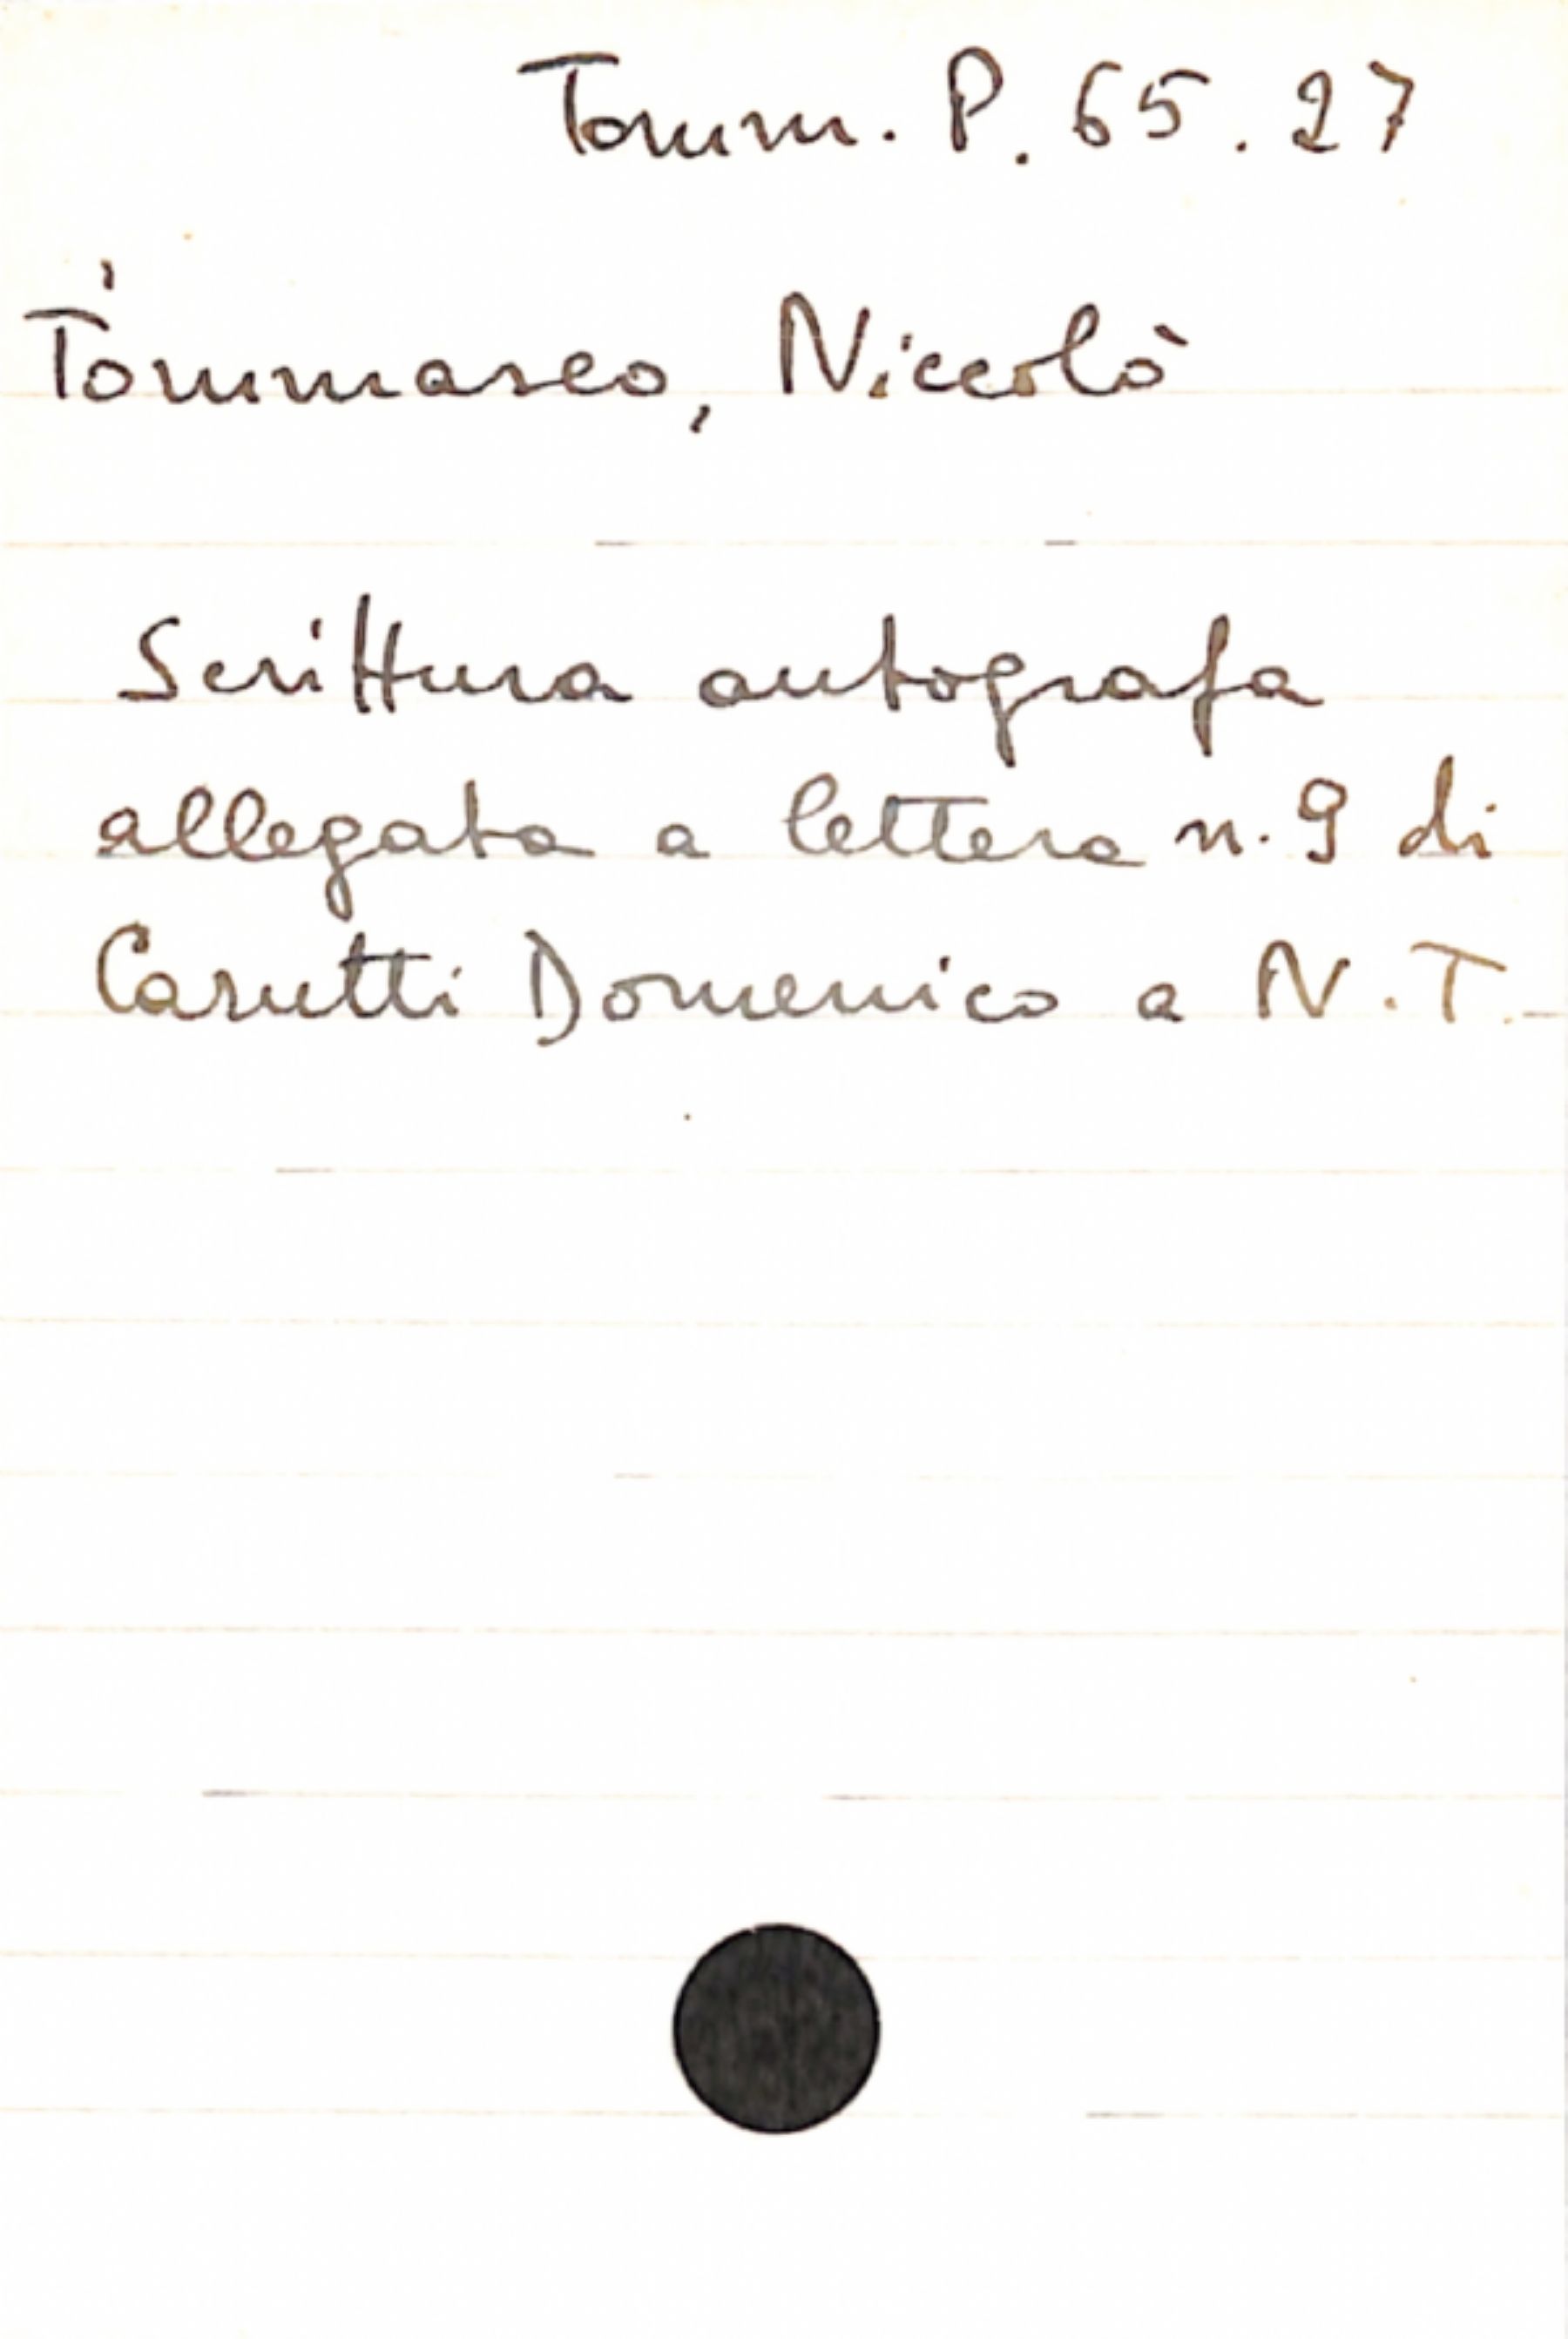 Tomm. P. 65. 27
Tommaseo, Niccolò
Scrittura autografa
allegata a lettera n. 9 di
Carutti Domenico a N. T.